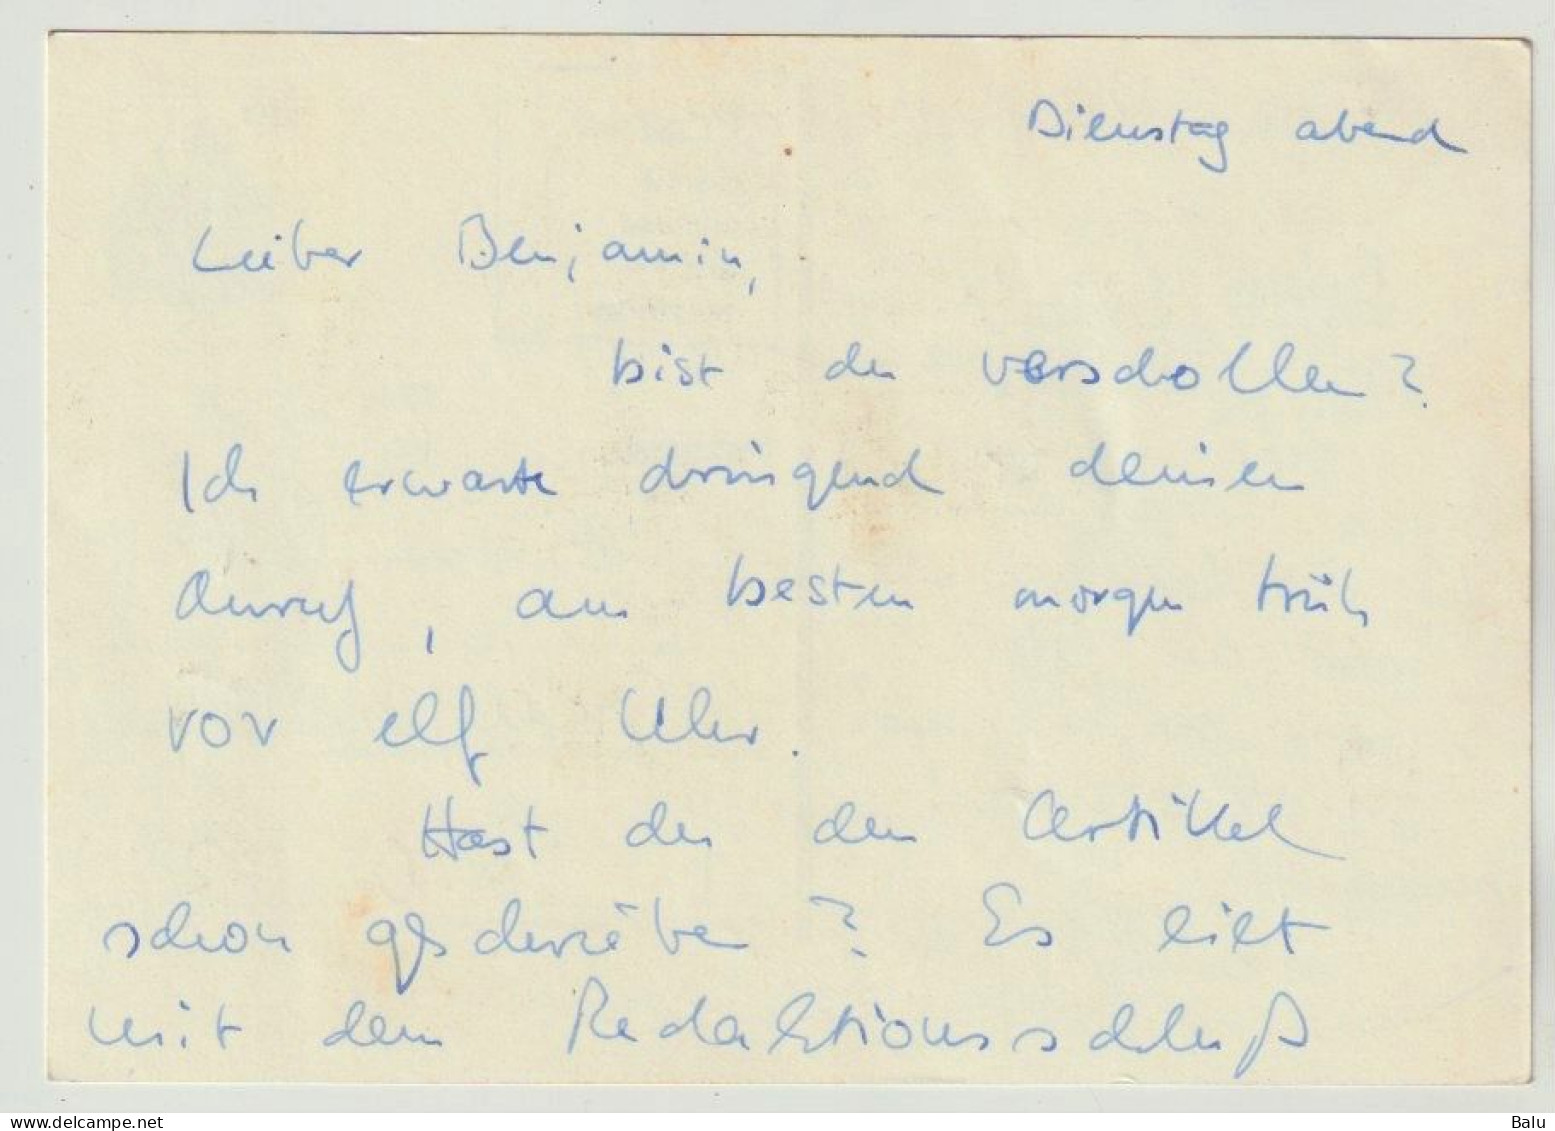 Dienstag abend
Lieber Benjamin,
bist du verschollen?
Ich erwarte dringend deinen
Anruf, am besten morgen früh
vor elf Uhr.
Hast du den Artikel
schon geschrieben? Es eilt
mit dem Redaktionsschluß
www.delcampe.net
Balu